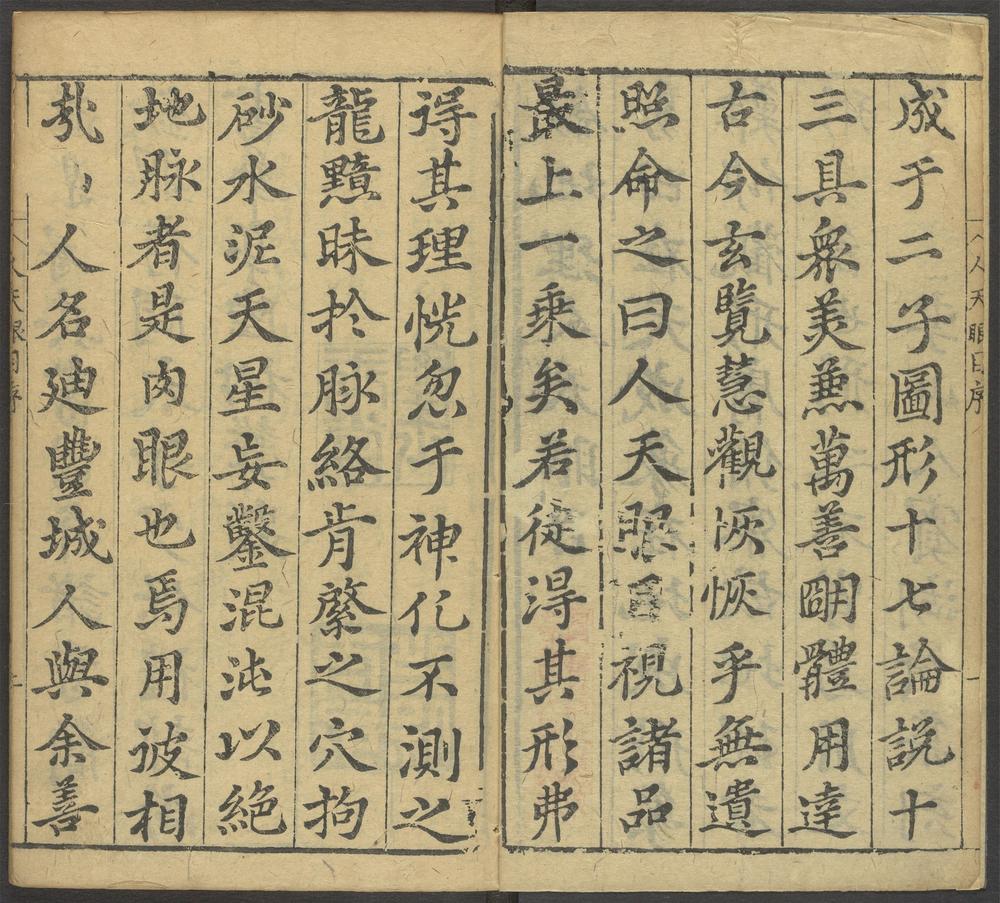 人天眼目序 一
成于二子圖形十七論説十
三具衆美兼萬善朙體用達
古今玄覽慧觀恢恢乎無遺
照命之曰人天眼目視諸品
最上一乘矣若徒得其形弗
得其理恍忽于神化不測之
龍黯昧扵脉絡肯綮之穴拘
砂水泥天星妄鑿混沌以絶
地脉者是肉眼也焉用彼相
人名廸豐城人與余善
人天眼目序 一